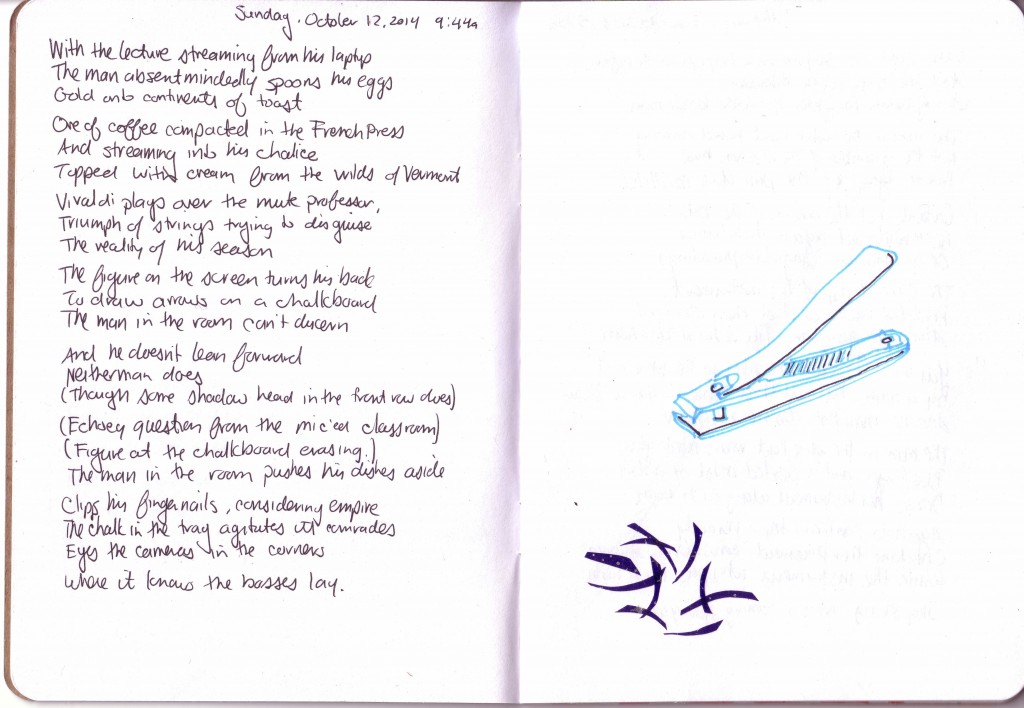 Sunday, October 12, 2014 9:44a
With the lecture streaming from his laptop
The man absentmindedly spoons his eggs
Gold onto continents of toast
Ore of coffee compacted in the French Press
And streaming into his chalice
Topped with cream from the wilds of Vermont
Vivaldi plays over the mute professor,
Triumph of strings trying to disguise
The reality of his season
The figure on the screen turns his back
To draw arrows on a chalkboard
The man in the room can't discern
And he doesn't lean forward
Neither man does
(Though some shadow head in the front row does)
(Echoey question from the mic'ed classroom)
(Figure at the chalkboard erasing.)
The man in the room pushes his dishes aside
Clips his fingernails, considering empire
The chalk in the tray agitates its comrades
Eyes the cameras in the corners
Where it knows the bosses lay.